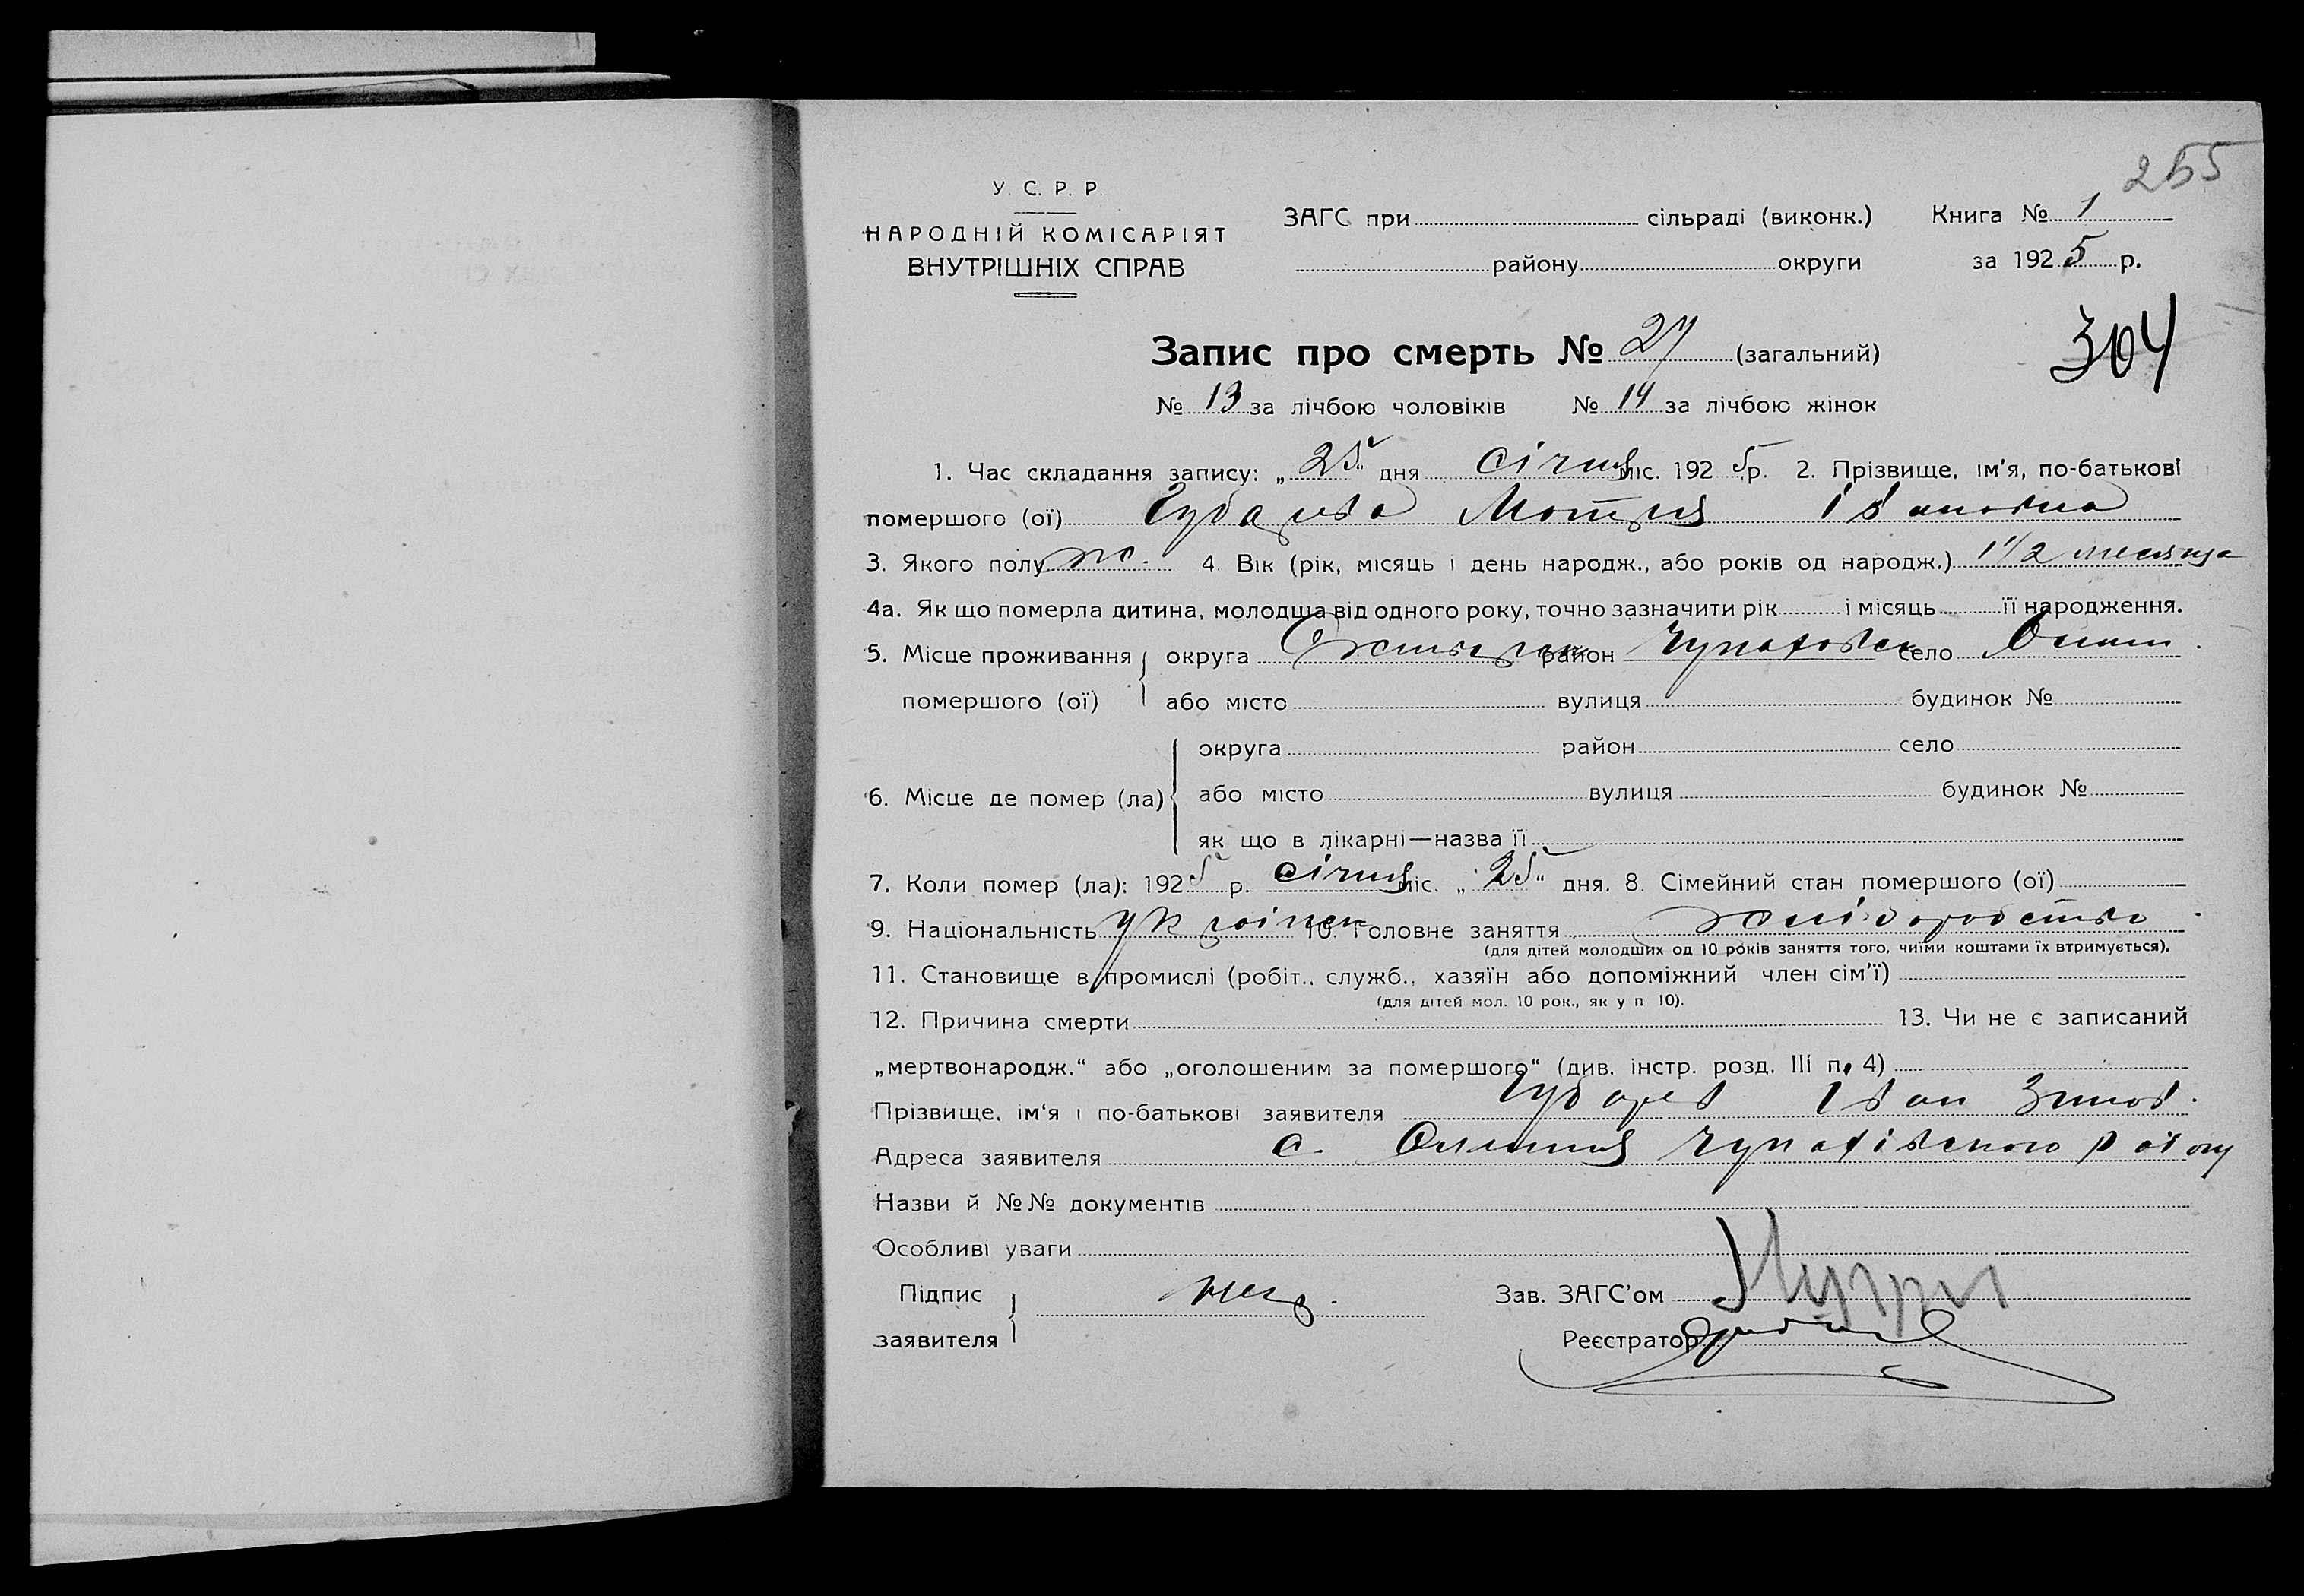 255
У. С. Р. Р.
НАРОДНІЙ КОМІСАРІЯТ
ВНУТРІШНІХ СПРАВ
ЗАГС при сільраді (виконк.)
району округи
Книга № 1
за 1925 р.
304
Запис про смерть № 27 (загальний)
№ 13 за лічбою чоловіків № 14 за лічбою жінок
1. Час складання запису: „25“ дня січня міс. 1925 р. 2. Прізвище, ім'я, по-батькові
помершого (ої) Губарєва Мотря Івановна
3. Якого полу ж. 4. Вік (рік, місяць і день народж., або років од народж.) 1 1/2 месяца
4а. Як що померла дитина, молодша від одного року, точно зазначити рік і місяць її народження.
5. Місце проживання округа район село
помершого (ої) або місто вулиця будинок №
округа район село
6. Місце де помер (ла) або місто вулиця будинок №
як що в лікарні—назва її
7. Коли помер (ла): 1925 р. січня міс. „25“ дня. 8. Сімейний стан помершого (ої)
9. Національність україн 10. Головне заняття хліборобство
(для дітей молодших од 10 років заняття того, чиїми коштами їх втримується).
11. Становище в промислі (робіт., служб., хазяїн або допоміжний член сім'ї)
(для дітей мол. 10 рок., як у п 10).
12. Причина смерти 13. Чи не є записаний
„мертвонародж.“ або „оголошеним за помершого“ (див. інстр. розд. III п. 4)
Прізвище, ім'я і по-батькові заявителя Губарев Іван Зинов.
Адреса заявителя с. району
Назви й №№ документів
Особливі уваги
Підпис
заявителя
Зав. ЗАГС'ом
Реєстратор